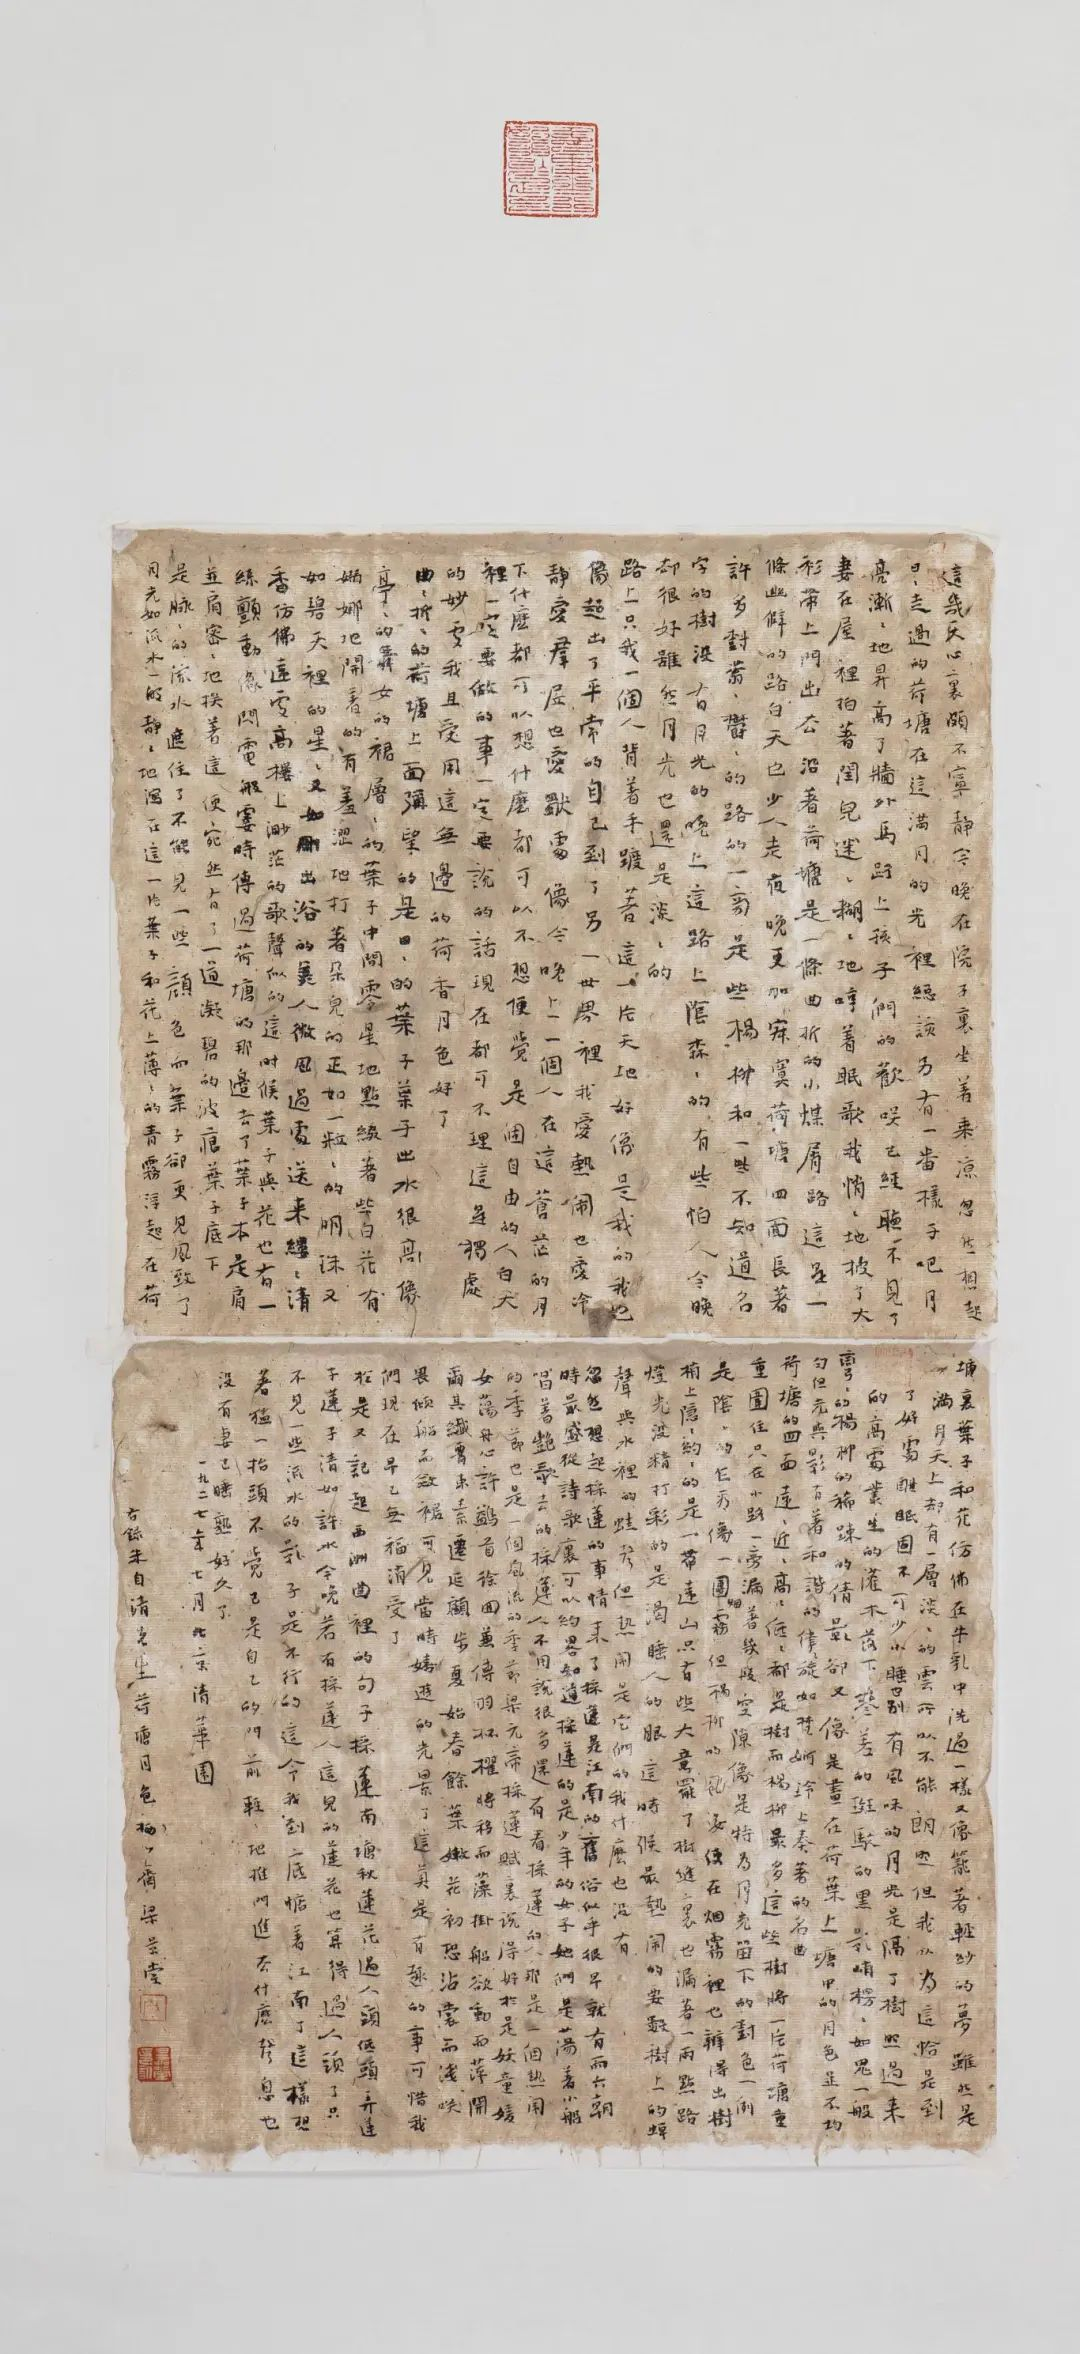 這幾天心裏頗不寧靜今晚在院子裏坐着乘凉忽然想起
日〻走過的荷塘在這滿月的光裡總該另有一番樣子吧月
亮漸〻地昇高了牆外馬路上孩子們的歡笑已經聽不見了
妻在屋裡拍著閏兒迷〻糊〻地哼着眠歌我悄〻地披了大
衫帶上門出去沿著荷塘是一條曲折的小煤屑路這是一
條幽僻的路白天也少人走夜晚更加寂寞荷塘四面長著
許多樹蓊〻鬱〻的路的一旁是些楊柳和一些不知道名
字的樹沒有月光的晚上這路上陰森〻的有些怕人今晚
却很好雖然月光也還是淡〻的
路上只我一個人背着手踱着這一片天地好像是我的我也
像超出了平常的自己到了另一世界裡我愛熱鬧也愛冷
靜愛羣居也愛獸處像今晚上一個人在這蒼茫的月
下什麼都可以想什麼都可以不想便覺是個自由的人白天
裡一定要做的事一定要說的話現在都可不理這是獨處
的妙處我且受用這無邊的荷香月色好了
曲〻折〻的荷塘上面彌望的是田〻的葉子葉子出水很高像
亭〻的舞女的裙層〻的葉子中間零星地點綴著些白花有
嬝娜地開着的有羞澀地打著朵兒的正如一粒〻的明珠又
如碧天裡的星〻又如剛出浴的美人微風過處送来縷〻清
香仿佛遠處高樓上渺茫的歌聲似的這时候葉子與花也有一
絲顫動像閃電般霎時傳過荷塘的那邊去了葉子本是肩
並肩密〻地挨着這便宛然有了一道凝碧的波痕葉子底下
是脉〻的流水遮住了不能見一些顔色而葉子卻更見風致了
月光如流水一般静〻地瀉在這一片葉子和花上薄〻的青霧浮起在荷
塘裏葉子和花仿佛在牛乳中洗過一樣又像籠著輕紗的夢雖然是
滿月天上却有一層淡〻的雲所以不能朗照但我以為這恰是到
了好處酣眠固不可少小睡也別有風味的月光是隔了樹照過来
的高處叢生的灌木落下參差的斑駁的黑影峭楞〻如鬼一般
彎〻的楊柳的稀疎的倩影卻又像是畫在荷葉上塘中的月色並不均
勻但光與影有著和諧的律旋如梵婀玲上奏著的名曲
荷塘的四面遠〻近〻高〻低〻都是樹而楊柳最多這些樹將一片荷塘重
重圍住只在小路一旁漏著幾段空隙像是特為月光留下的樹色一例
是陰〻的乍看像一團烟霧但楊柳的風姿便在烟霧裡也辨得出樹
梢上隱〻約〻的是一帶遠山只有些大意罷了樹縫裏也漏著一兩點路
燈光没精打彩的是渴睡人的眼這時候最熱鬧的要數樹上的蟬
聲與水裡的蛙聲但熱鬧是它們的我什麼也没有
忽然想起採蓮的事情来了採蓮是江南的舊俗似乎很早就有而六朝
時最盛從詩歌裏可以約畧知道採蓮的是少年的女子她們是蕩著小船
唱着艷歌去的採蓮人不用說很多還有看採蓮的人那是一個熱鬧
的季節也是一個風流的季節梁元帝採蓮賦裏說得好於是妖童媛
女蕩舟心許鷁首徐回兼傳羽杯櫂將移而藻掛船欲動而萍開
爾其纖腰束素遷延顧步夏始春餘葉嫩花初恐沾裳而淺笑
畏傾船而斂裾可見當時嬉遊的光景了這真是有趣的事可惜我
們現在早已無福消受了
於是又記起西洲曲裡的句子採蓮南塘秋蓮花過人頭低頭弄蓮
子蓮子清如許水今晚若有採蓮人這兒的蓮花也算得過人頭了只
不見一些流水的影子是不行的這令我到底惦着江南了這樣想
著猛一抬頭不覺已是自己的門前輕〻地推門進去什麼聲息也
没有妻已睡熟好久了
一九二七年七月北京清華園
右錄朱自清先生荷塘月色